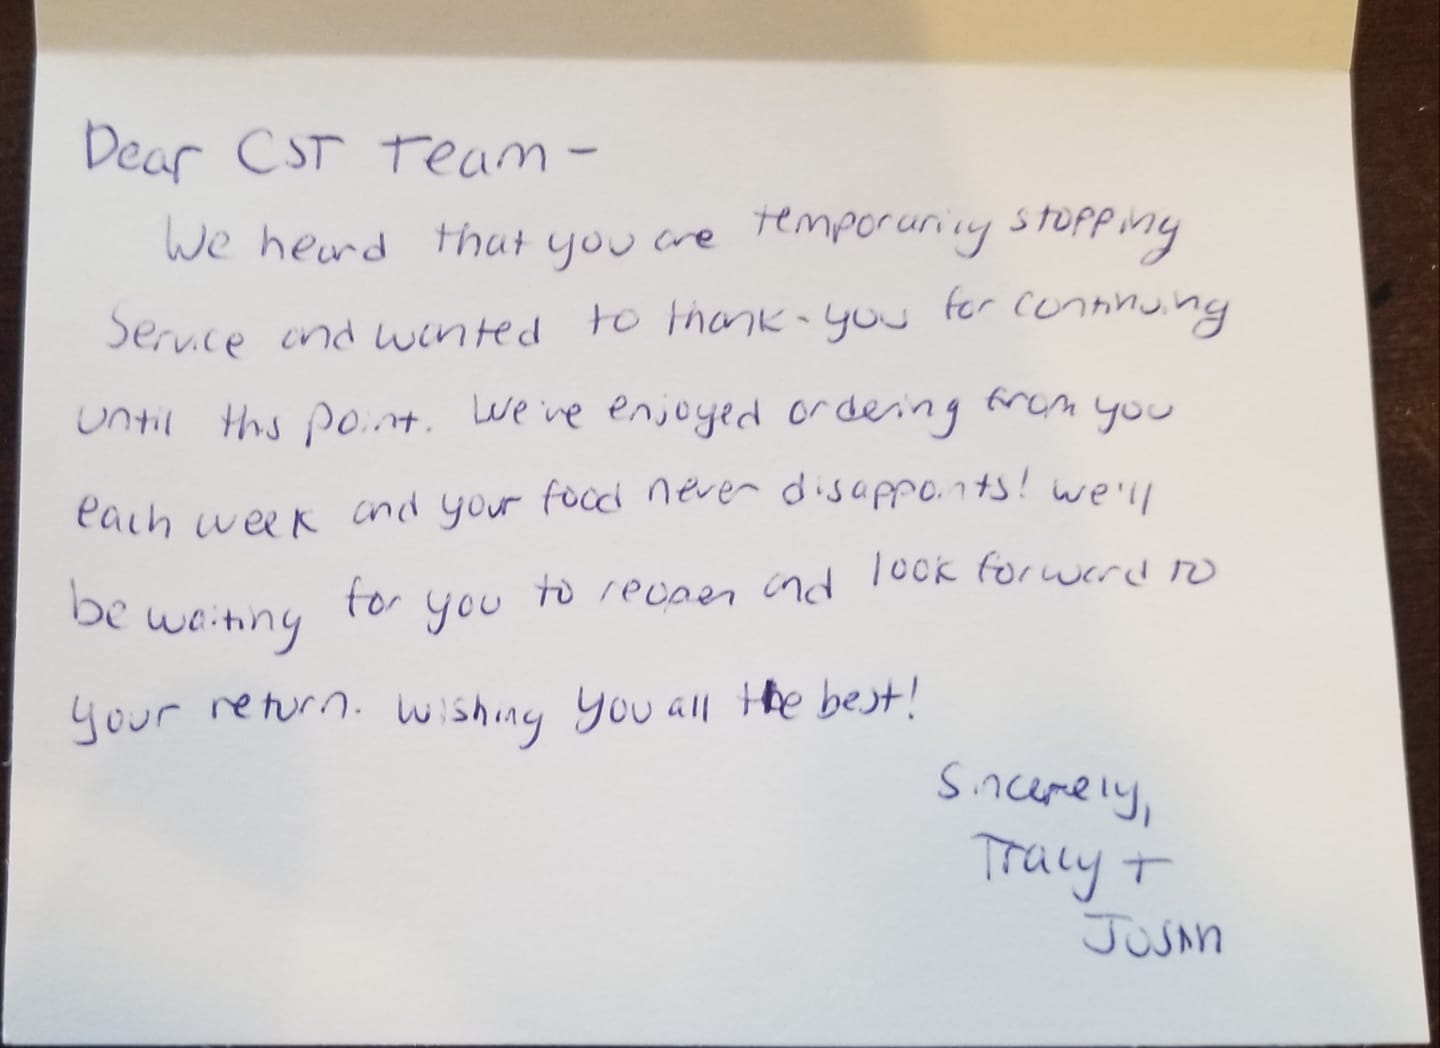 Dear CST Team -
We heard that you are temporarily stopping
Service and wanted to thank-you for continuing
until this point. We've enjoyed ordering from you
each week and your food never disappoints! we'll
be waiting for you to reopen and look forward to
your return. Wishing you all the best!
Sincerely,
Tracy +
Justin